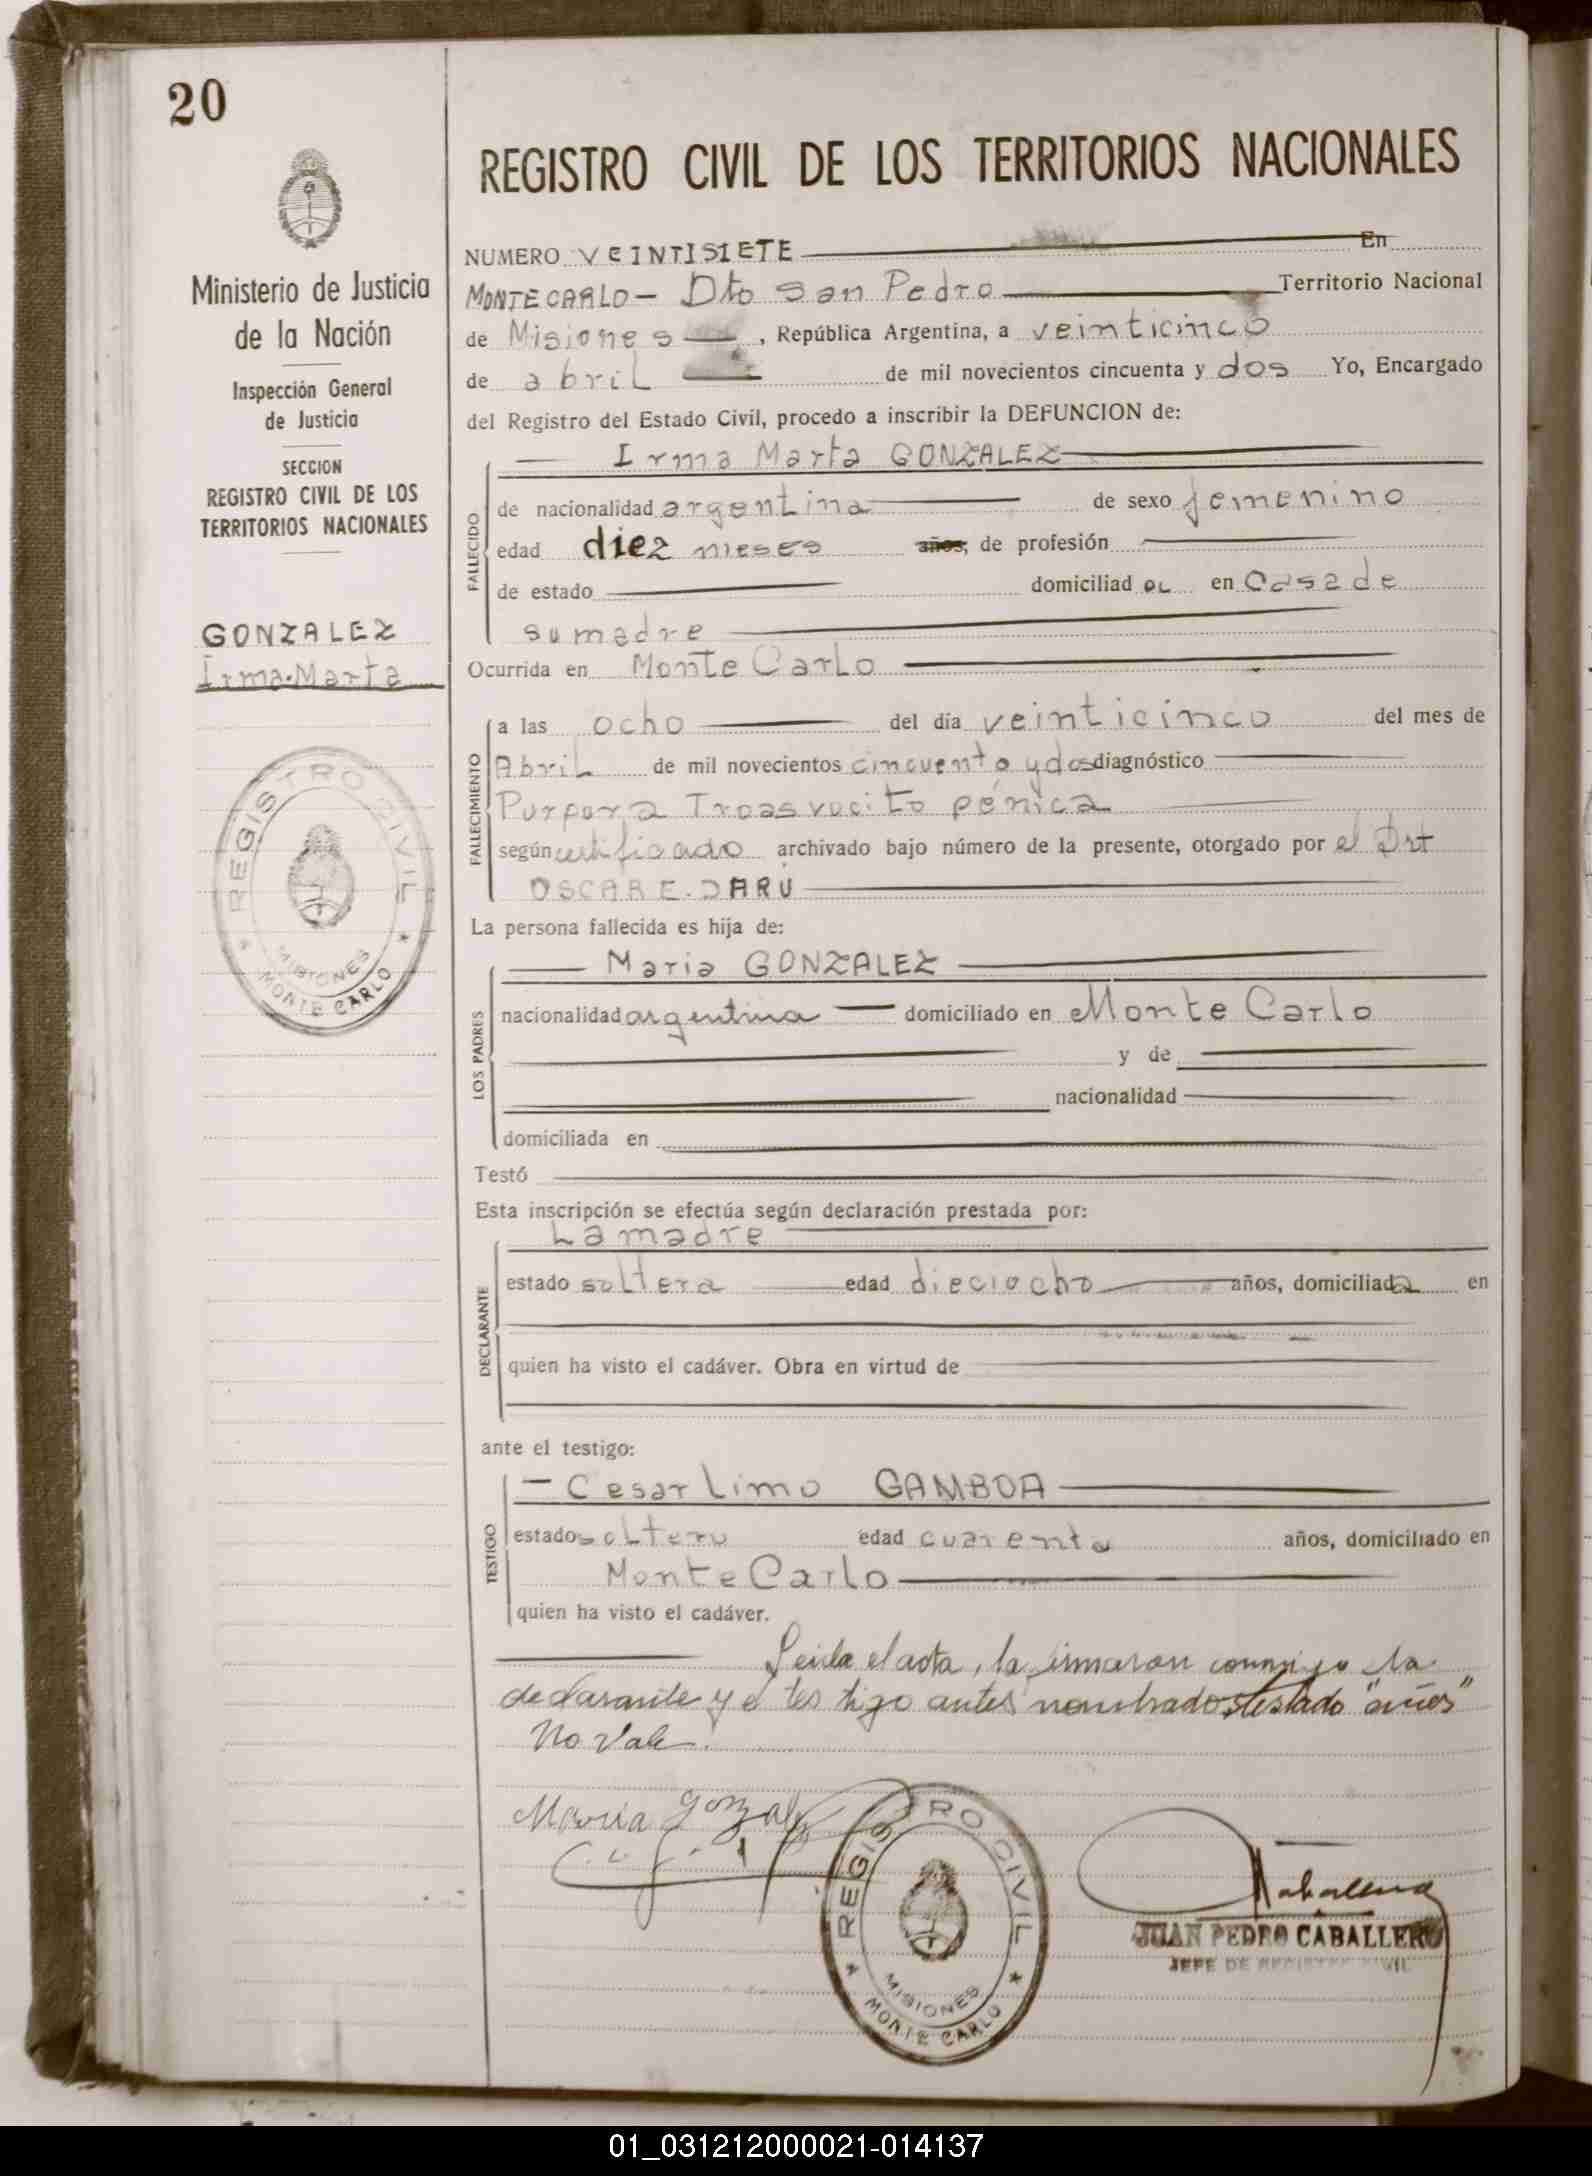 20
REGISTRO CIVIL DE LOS TERRITORIOS NACIONALES
Ministerio de Justicia
de la Nación
Inspección General
de Justicia
SECCION
REGISTRO CIVIL DE LOS
TERRITORIOS NACIONALES
GONZALEZ
Irma Marta
REGISTRO CIVIL
MISIONES
MONTE CARLO
NUMERO VEINTISIETE En
MONTECARLO - Dto San Pedro Territorio Nacional
de Misiones, República Argentina, a veinticinco
de abril de mil novecientos cincuenta y dos Yo, Encargado
del Registro del Estado Civil, procedo a inscribir la DEFUNCION de:
Irma Marta GONZALEZ
FALLECIDO
de nacionalidad argentina de sexo femenino
edad diez meses años, de profesión
de estado domiciliad a en Casa de
su madre
Ocurrida en Monte Carlo
FALLECIMIENTO
a las ocho del día veinticinco del mes de
Abril de mil novecientos cincuenta y dos diagnóstico
Purpura pénica
según certificado archivado bajo número de la presente, otorgado por el Drt
OSCAR E. DARÚ
La persona fallecida es hija de:
LOS PADRES
Maria GONZALEZ
nacionalidad argentina domiciliado en Monte Carlo
y de
nacionalidad
domiciliada en
Testó
Esta inscripción se efectúa según declaración prestada por:
DECLARANTE
La madre
estado soltera edad dieciocho años, domiciliada en
quien ha visto el cadáver. Obra en virtud de
ante el testigo:
TESTIGO
Cesar Limo GAMBOA
estado soltero edad cuarenta años, domiciliado en
Monte Carlo
quien ha visto el cadáver.
Leída el acta, la firmaron conmigo la
declarante y el testigo antes nombrados, testado "años"
No Vale.
Maria Gonzalez
REGISTRO CIVIL
MISIONES
MONTE CARLO
Caballero
JUAN PEDRO CABALLERO
JEFE DE REGISTRO CIVIL
01_031212000021-014137